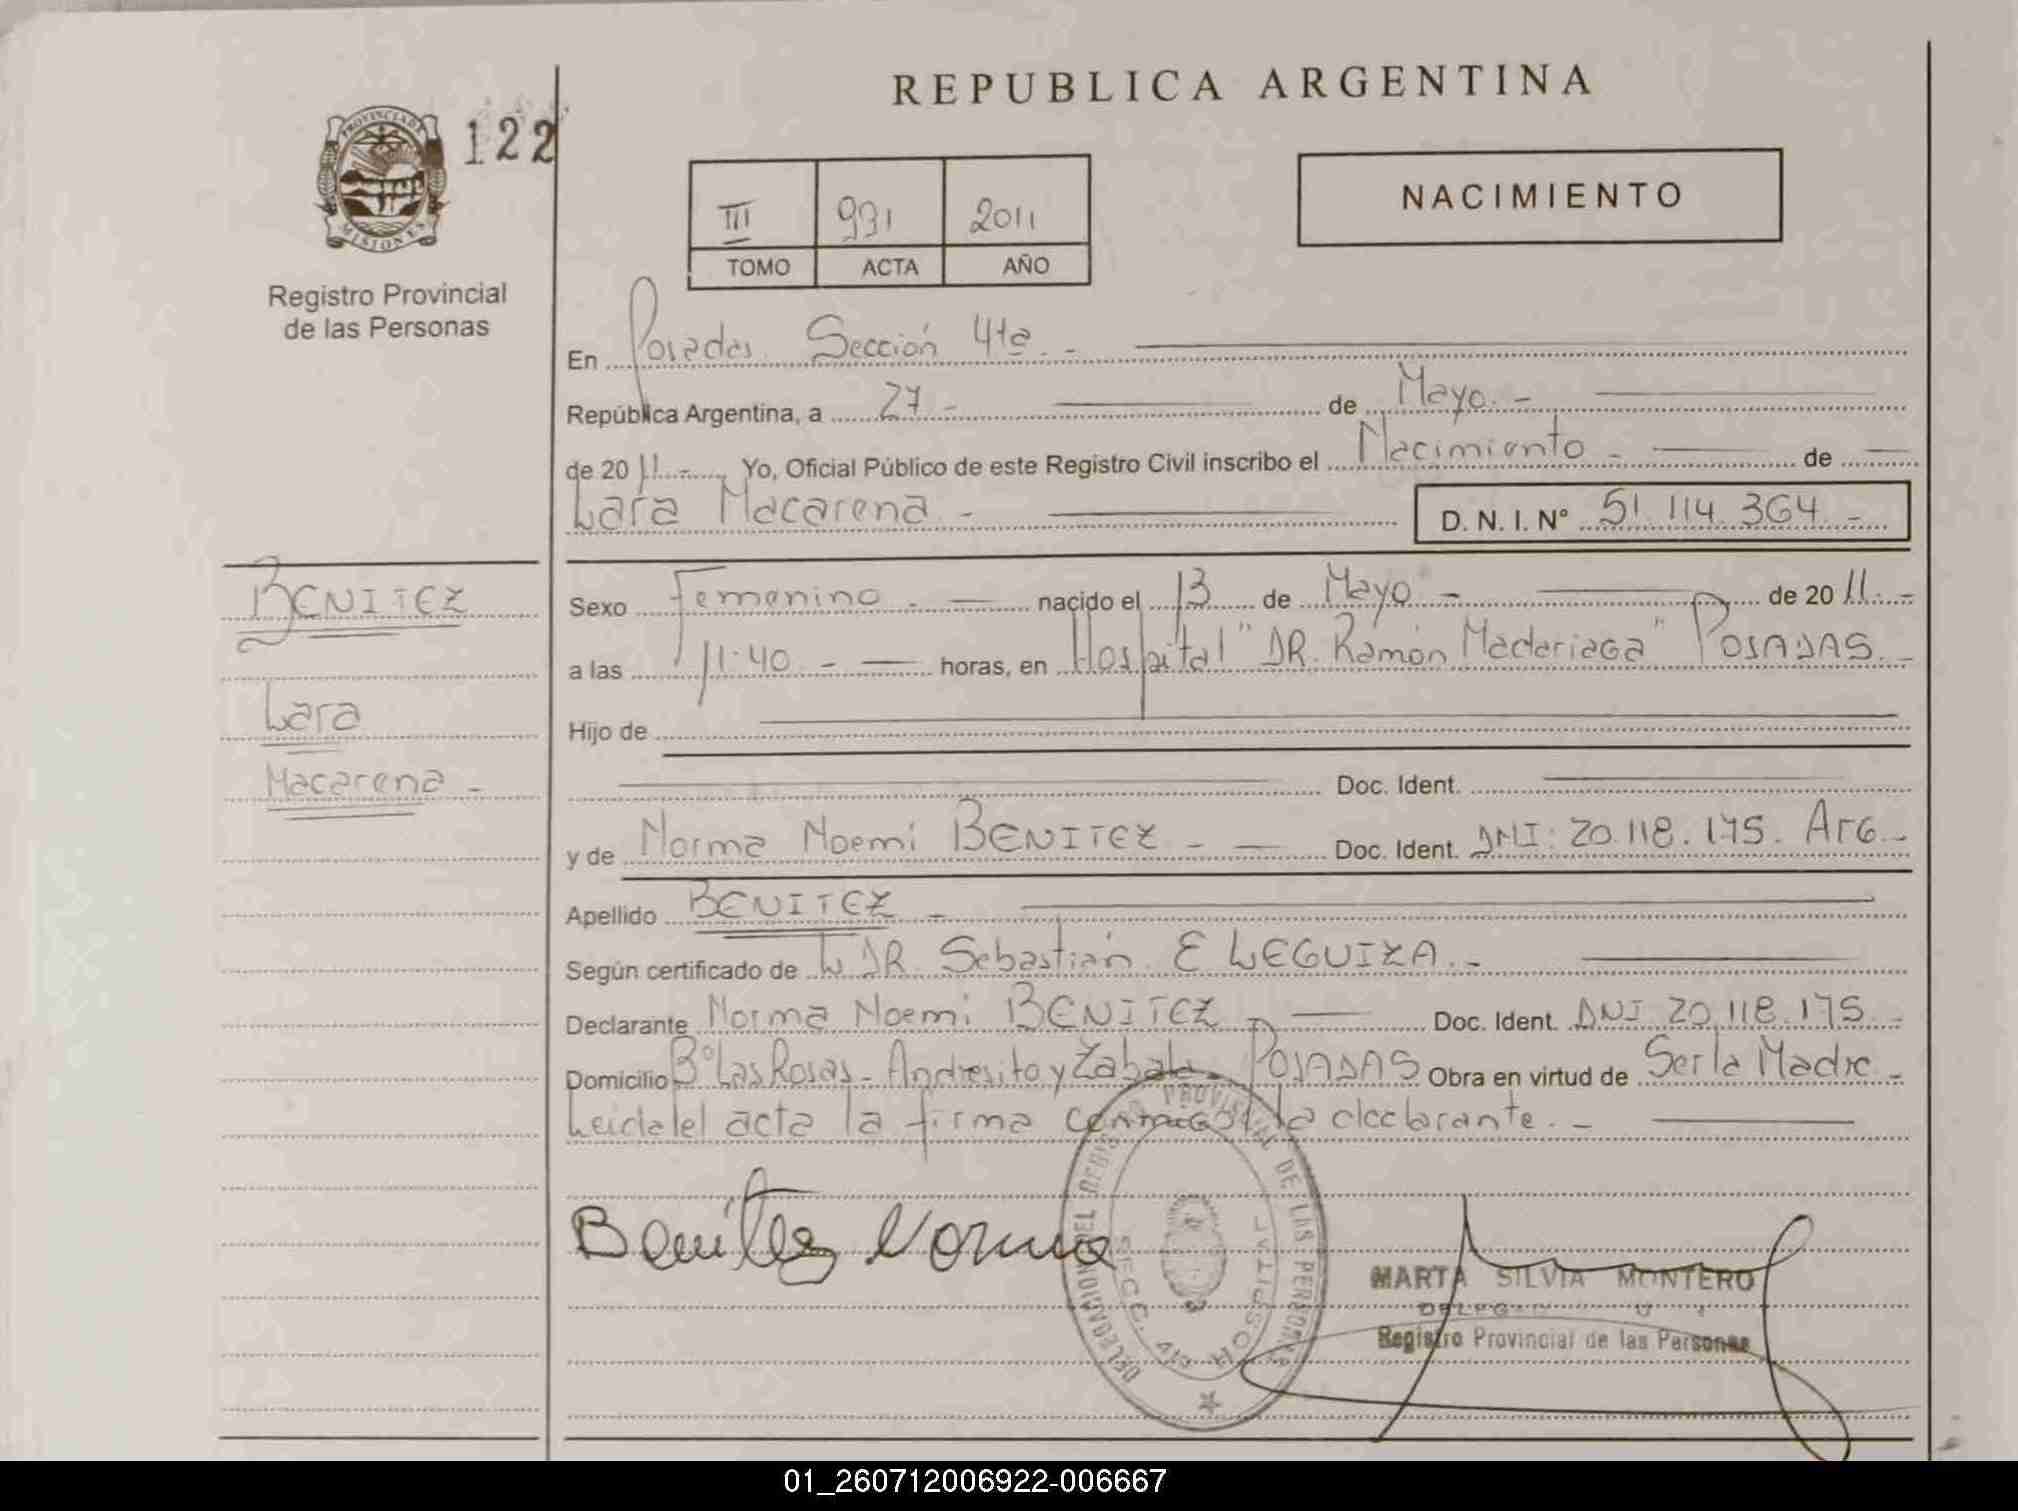 REPUBLICA ARGENTINA
PROVINCIA DE MISIONES
122
Registro Provincial
de las Personas
III 991 2011
TOMO ACTA AÑO
NACIMIENTO
En Posadas Sección 4ta.-
República Argentina, a 27 - de Mayo.-
de 2011.- Yo, Oficial Público de este Registro Civil inscribo el Nacimiento - de
Lara Macarena - D. N. I. Nº 51.114.364 -
BENITEZ
Lara
Macarena -
Sexo Femenino - nacido el 13 de Mayo - de 2011.-
a las 11:40 - horas, en Hospital "DR. Ramón Madariaga" POSADAS.-
Hijo de
Doc. Ident.
y de Norma Noemi BENITEZ - Doc. Ident. DNI: 20.118.175. Arg.-
Apellido BENITEZ -
Según certificado de DR. Sebastián E LEGUIZA.-
Declarante Norma Noemi BENITEZ - Doc. Ident. DNI 20.118.175.-
Domicilio Bº Las Rosas - Andresito y Zabala - POSADAS Obra en virtud de Ser la Madre -
Leida el acta la firma conmigo la declarante.-
Benitez Norma
DELEGACION DEL REGISTRO PROVINCIAL DE LAS PERSONAS
SECC. 4ta HOSPITAL
MARTA SILVIA MONTERO
Registro Provincial de las Personas
01_260712006922-006667